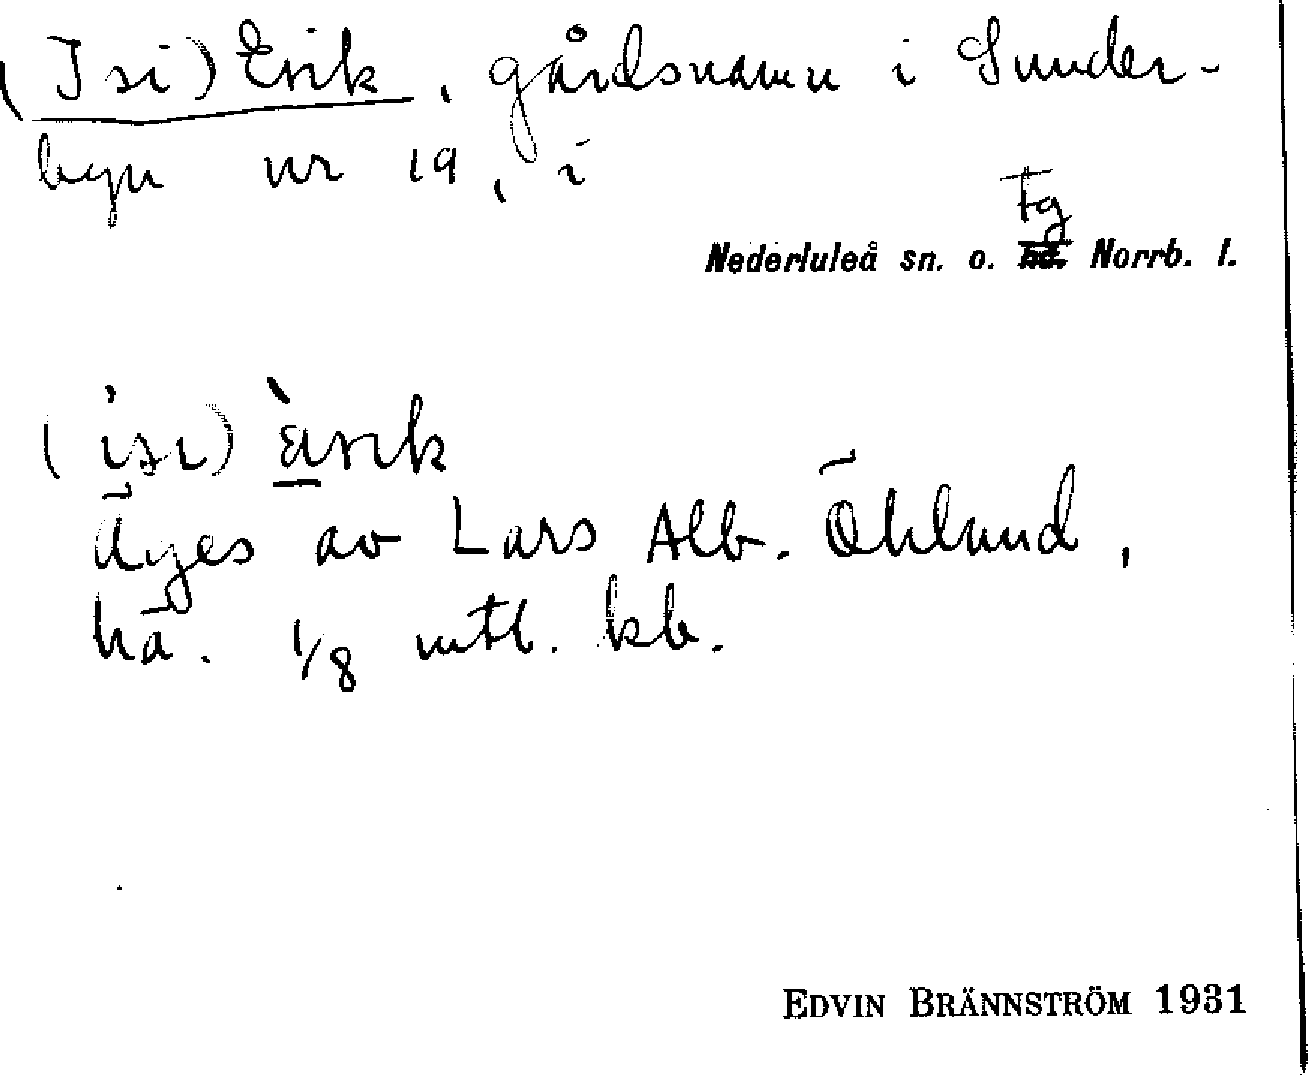 (Isi) Erik, gårdsnamn i Sunder-
byn nr 19, i
Tg
Nederluleå sn. o. hd. Norrb. l.
(isi) ärik
Äges av Lars Alb. Öhlund,
hä. 1/8 mtl. kb.
EDVIN BRÄNNSTRÖM 1931